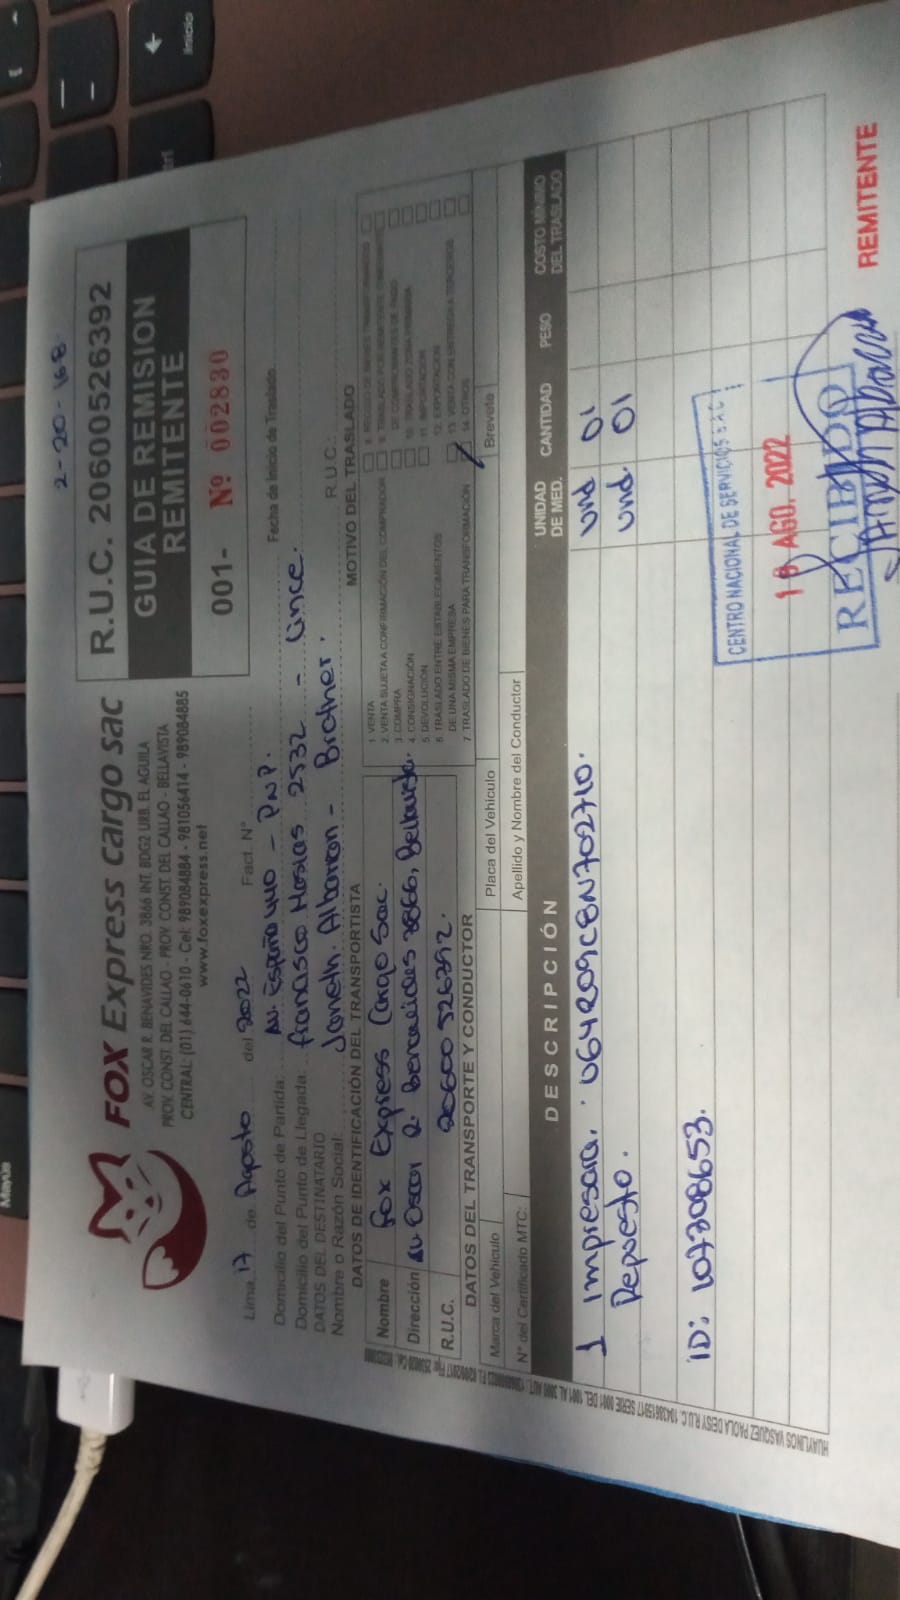 2-20-168
FOX Express cargo sac
AV. OSCAR R. BENAVIDES NRO. 3866 INT. BDG2 URB. EL AGUILA
PROV. CONST. DEL CALLAO - PROV. CONST. DEL CALLAO - BELLAVISTA
CENTRAL: (01) 644-0610 - Cel: 989084884 - 981056414 - 989084885
www.foxexpress.net
R.U.C. 20600526392
GUIA DE REMISION
REMITENTE
001- Nº 002830
Lima, 17 de Agosto del 2022 Fact. N°
Fecha de Inicio de Traslado
Domicilio del Punto de Partida: Av. España 440 - PNP.
Domicilio del Punto de Llegada: Francisco Masias 2532 - Lince.
DATOS DEL DESTINATARIO
Nombre o Razón Social: Janeth Albarran - Brother. R.U.C.:
DATOS DE IDENTIFICACIÓN DEL TRANSPORTISTA
Nombre Fox Express Cargo Sac.
Dirección Av. Oscar R. Benavides 3866, Bellavista.
R.U.C. 20600526392.
MOTIVO DEL TRASLADO
1 VENTA
2. VENTA SUJETA A CONFIRMACIÓN DEL COMPRADOR
3 COMPRA
4. CONSIGNACIÓN
5 DEVOLUCIÓN
6 TRASLADO ENTRE ESTABLECIMIENTOS
DE UNA MISMA EMPRESA
7 TRASLADO DE BIENES PARA TRANSFORMACIÓN
8. RECOJO DE BIENES TRANSFORMADOS
9. TRASLADO POR EMISOR ITINERANTE
DE COMPROBANTES DE PAGO
10. TRASLADO ZONA PRIMARIA
11 IMPORTACION
12. EXPORTACION
13 VENTA CON ENTREGA A TERCEROS
14 OTROS
DATOS DEL TRANSPORTE Y CONDUCTOR
Marca del Vehículo Placa del Vehiculo Brevete
N° del Certificado MTC: Apellido y Nombre del Conductor
DESCRIPCIÓN UNIDAD DE MED. CANTIDAD PESO COSTO MINIMO DEL TRASLADO
1 Impresora. U64209C8N702710. Und 01
Repuesto. Und. 01
ID: 107308653.
CENTRO NACIONAL DE SERVICIOS S.A.C.
18 AGO. 2022
RECIBIDO
REMITENTE
HUAYLINOS VASQUEZ PAOLA DEISY R.U.C.